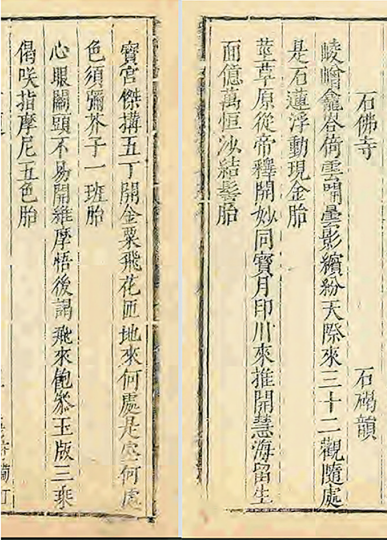 石佛寺　石碣韻
崚嶒龕谷倚雲曇影繽紛天際來三十二觀隨處
是石蓮浮動現金胎
莖草原從帝釋開妙同寶月印川來推開慧海留生
面億萬恒沙結髻胎
寶宮傑搆五丁開金粟飛花匝地來何處是空何處
色須彌芥子一班胎
心眼關頭不易開維摩悟後謁飛來飽參玉版三乘
偈咲指摩尼五色胎